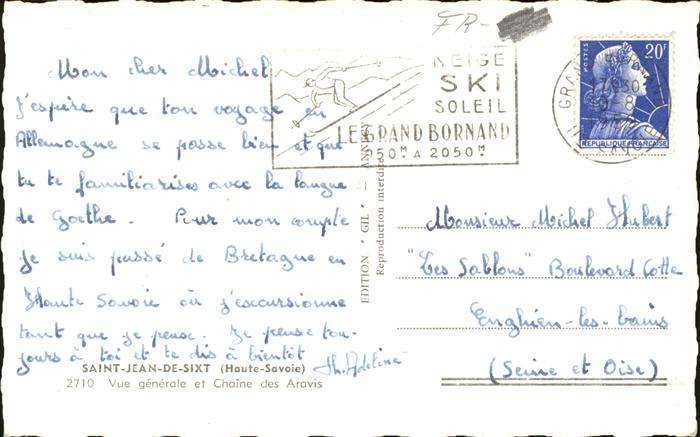 FR-
Mon cher Michel
J'espère que ton voyage en
Allemagne se passe bien et que
tu te familiarises avec la langue
de Goethe. Pour mon compte
je suis passé de Bretagne en
Haute Savoie où j'excursionne
tant que je peux. Je pense tou-
jours à toi et te dis à bientôt
SAINT-JEAN-DE-SIXT (Haute-Savoie)
2710 Vue générale et Chaîne des Aravis
NEIGE
SKI
SOLEIL
LE GRAND BORNAND
950M A 2050M
POSTES
20F
REPUBLIQUE FRANÇAISE
EDITION "GIL"
Reproduction interdite
Monsieur Michel Hubert
"Les Sablons" Boulevard Cotte
Enghien-les-bains
(Seine et Oise)